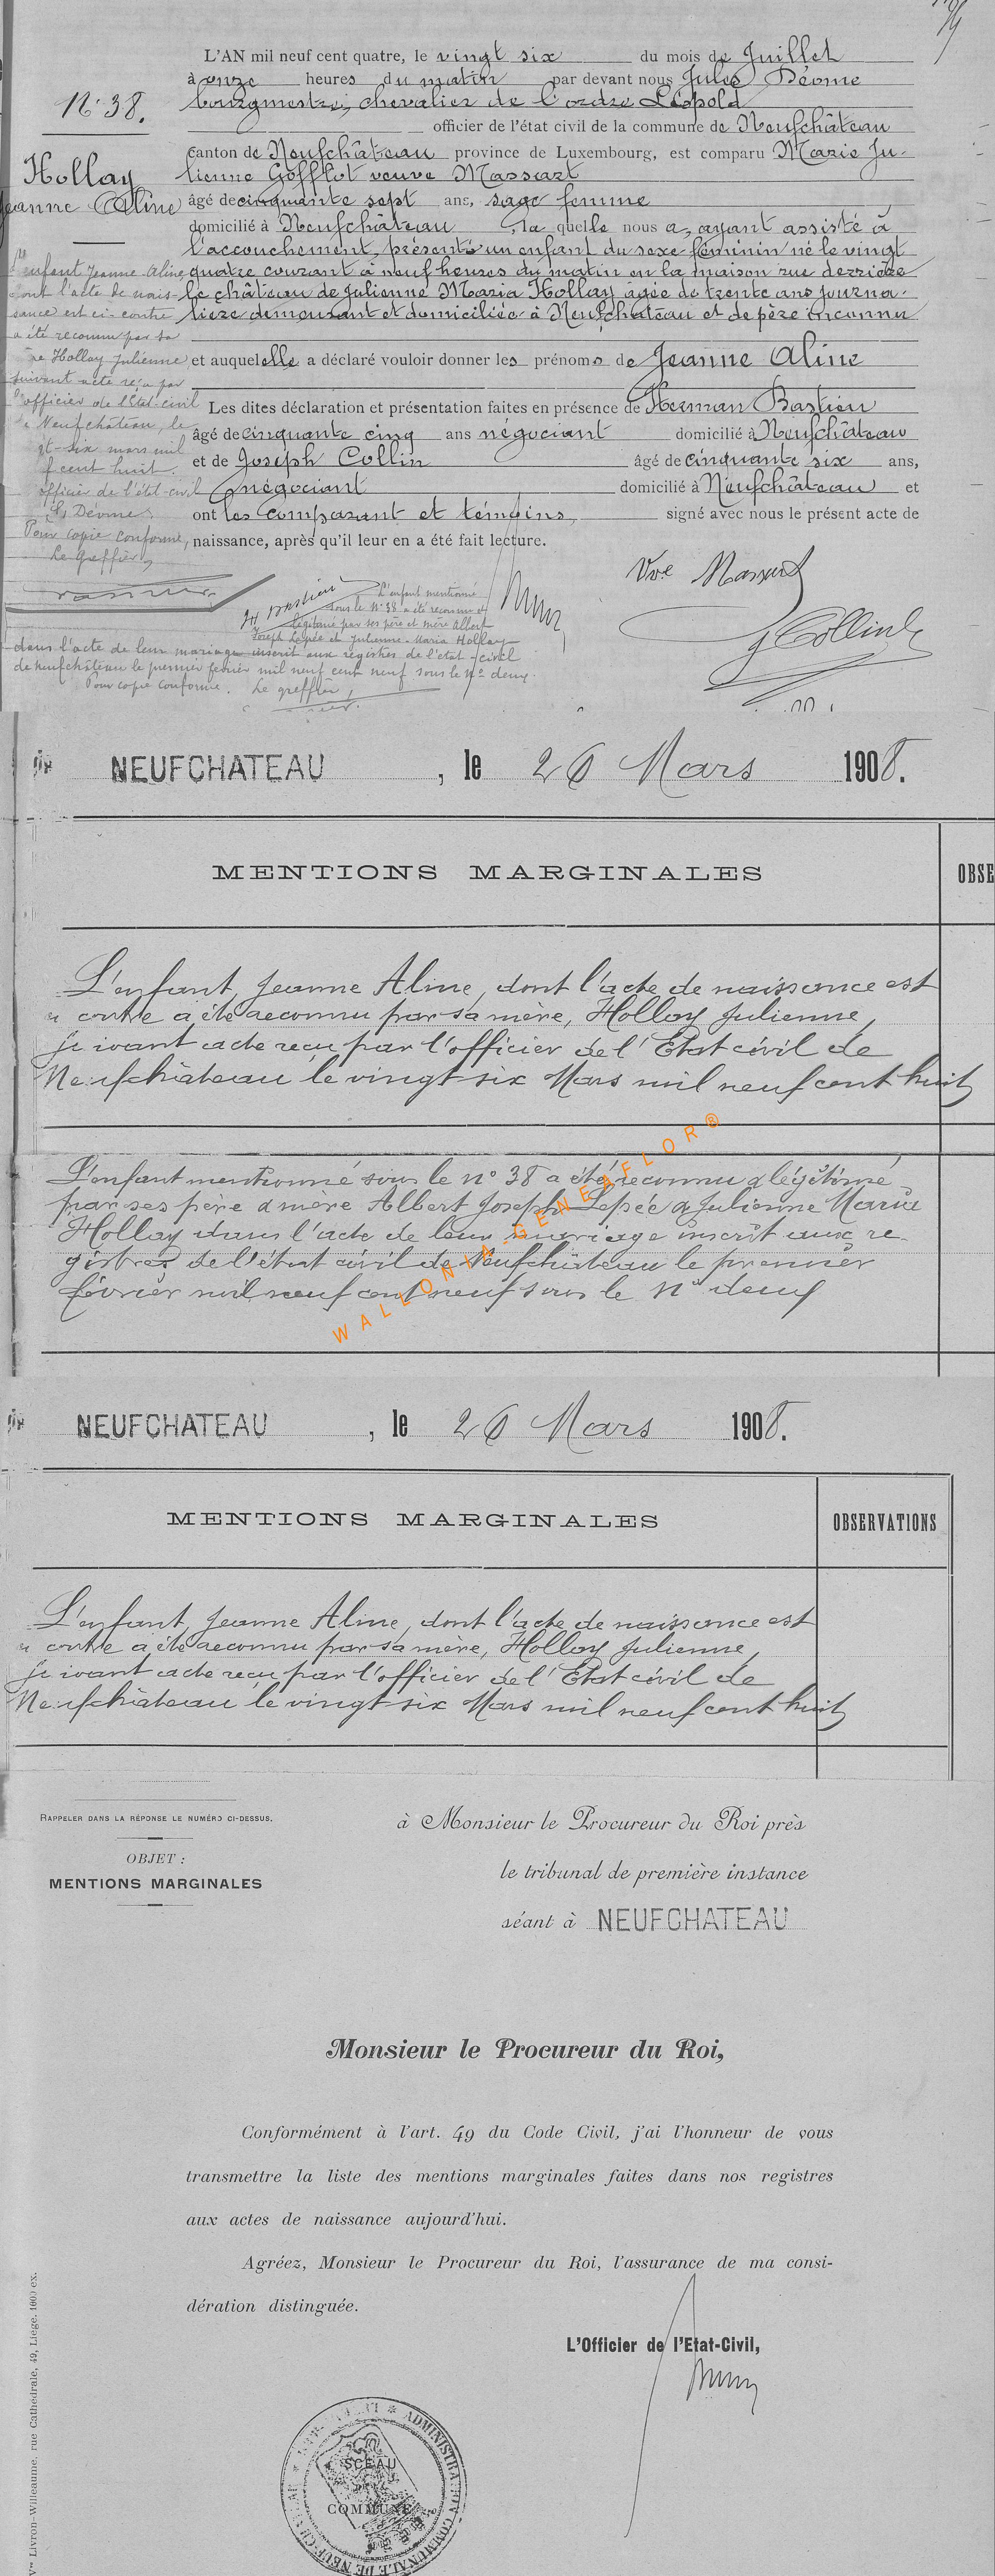 L'AN mil neuf cent quatre, le vingt six du mois de Juillet
à onze heures du matin par devant nous Jules Déome
bourgmestre, chevalier de l'ordre Léopold
officier de l'état civil de la commune de Neufchâteau
canton de Neufchâteau province de Luxembourg, est comparu Marie Ju-
lienne Gofflot veuve Massart
âgé de cinquante sept ans, sage femme
domicilié à Neufchâteau, la quelle nous a, ayant assisté à
l'accouchement, présenté un enfant du sexe féminin né le vingt
quatre courant à neuf heures du matin en la maison rue derrière
le château de Julienne Maria Hollay agée de trente ans journa-
lière demeurant et domiciliée à Neufchateau et de père inconnu
et auquel elle a déclaré vouloir donner les prénoms de Jeanne Aline
Les dites déclaration et présentation faites en présence de Herman Bastien
âgé de cinquante cinq ans négociant domicilié à Neufchâteau
et de Joseph Collin âgé de cinquante six ans,
négociant domicilié à Neufchâteau et
ont les comparant et temoins, signé avec nous le présent acte de
naissance, après qu'il leur en a été fait lecture.
N° 38.
Hollay
Jeanne Aline
l'enfant Jeanne Aline
dont l'acte de nais-
sance est ci-contre
a été reconnu par sa
Hollay Julienne
suivant acte reçu par
l'officier de l'Etat-civil
Neufchâteau, le
gt-six mars mil
f cent huit.
officier de l'état-civil
(s) Déome
Pour copie conforme,
Le Greffier,
H Bastien
Vve Massart
J Collin
L'enfant mentionné
sous le N° 38 a été reconnu et
légitimé par ses père et mère Albert
Joseph Lepée et Julienne-Maria Hollay
dans l'acte de leur mariage inscrit aux registres de l'état-civil
de neufchâteau le premier février mil neuf cent neuf sous le N° deux.
Pour copie conforme. Le greffier,
NEUFCHATEAU, le 26 Mars 1908.
MENTIONS MARGINALES OBSE
L'enfant, Jeanne Aline, dont l'acte de naissance est
ci contre a été reconnu par sa mère, Hollay Julienne,
suivant acte reçu par l'officier de l'Etat civil de
Neufchâteau le vingt-six Mars mil neuf cent huit
L'enfant mentionné sous le n° 38 a été reconnu & légitimé
par ses père & mère Albert Joseph Lepée & Julienne Maria
Hollay dans l'acte de leur mariage inscrit aux re-
gistres de l'état civil de Neufchâteau le premier
février mil neuf cent neuf sous le N° deux
WALLONIA-GENEAFLOR®
NEUFCHATEAU, le 26 Mars 1908.
MENTIONS MARGINALES OBSERVATIONS
L'enfant, Jeanne Aline, dont l'acte de naissance est
ci contre a été reconnu par sa mère, Hollay Julienne,
suivant acte reçu par l'officier de l'Etat civil de
Neufchâteau le vingt-six Mars mil neuf cent huit
RAPPELER DANS LA RÉPONSE LE NUMÉRO CI-DESSUS.
OBJET :
MENTIONS MARGINALES
à Monsieur le Procureur du Roi près
le tribunal de première instance
séant à NEUFCHATEAU
Monsieur le Procureur du Roi,
Conformément à l'art. 49 du Code Civil, j'ai l'honneur de vous
transmettre la liste des mentions marginales faites dans nos registres
aux actes de naissance aujourd'hui.
Agréez, Monsieur le Procureur du Roi, l'assurance de ma consi-
dération distinguée.
L'Officier de l'Etat-Civil,
SCEAU
COMMUNE
ADMINISTRATION COMMUNALE DE NEUFCHATEAU
Vve Livron-Willeaume, rue Cathédrale, 49, Liége. 1000 ex.